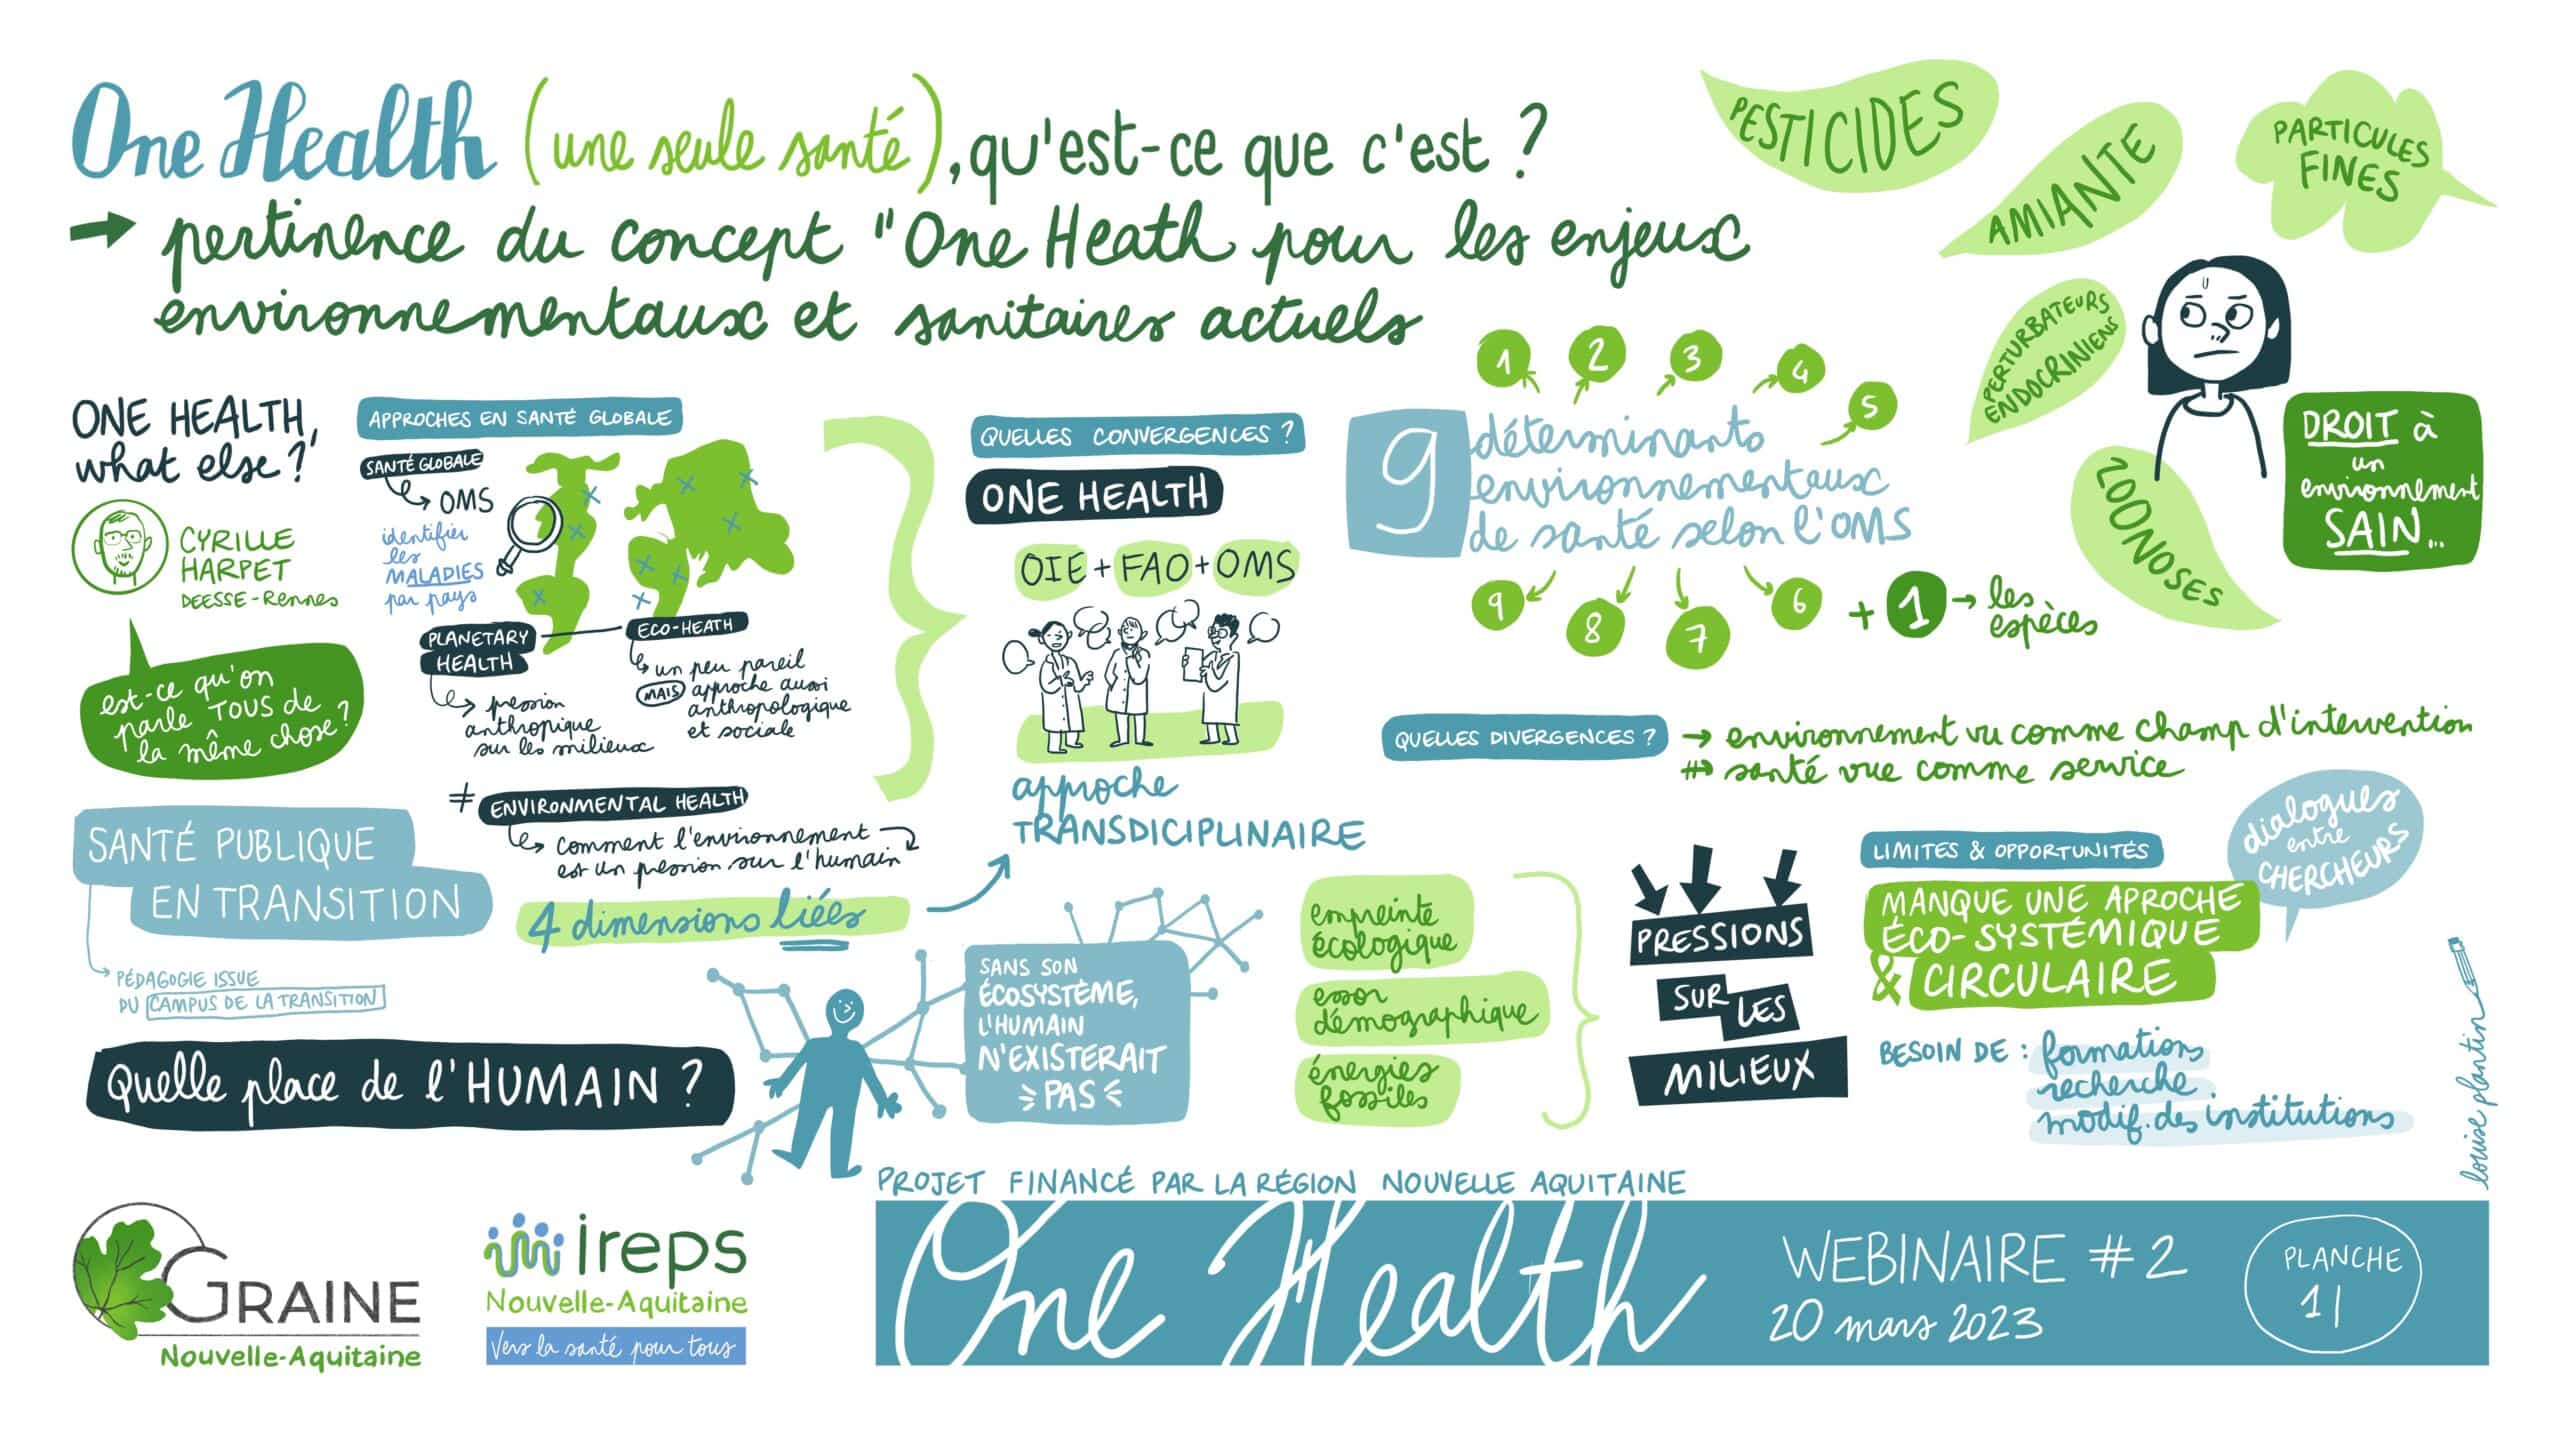 One Health (une seule santé), qu'est-ce que c'est ?
→ pertinence du concept "One Heath pour les enjeux
environnementaux et sanitaires actuels
PESTICIDES
AMIANTE
PARTICULES
FINES
PERTURBATEURS
ENDOCRINIENS
ZOONOSES
DROIT à
un
environnement
SAIN...
ONE HEALTH,
what else ?
CYRILLE
HARPET
DEESSE-Rennes
est-ce qu'on
parle TOUS de
la même chose ?
APPROCHES EN SANTÉ GLOBALE
SANTÉ GLOBALE
OMS
identifier
les
MALADIES
par pays
PLANETARY
HEALTH
pression
anthropique
sur les milieux
ECO-HEATH
un peu pareil
MAIS approche aussi
anthropologique
et sociale
≠ ENVIRONMENTAL HEALTH
comment l'environnement
est un pression sur l'humain
4 dimensions liées
QUELLES CONVERGENCES ?
ONE HEALTH
OIE + FAO + OMS
approche
TRANSDICIPLINAIRE
1
2
3
4
5
9 déterminants
environnementaux
de santé selon l'OMS
9
8
7
6
+ 1 → les
espèces
QUELLES DIVERGENCES ?
→ environnement vu comme champ d'intervention
≠> santé vue comme service
SANTÉ PUBLIQUE
EN TRANSITION
PÉDAGOGIE ISSUE
DU CAMPUS DE LA TRANSITION
Quelle place de l'HUMAIN ?
SANS SON
ÉCOSYSTÈME,
L'HUMAIN
N'EXISTERAIT
PAS
empreinte
écologique
essor
démographique
énergies
fossiles
PRESSIONS
SUR LES
MILIEUX
LIMITES & OPPORTUNITÉS
MANQUE UNE APROCHE
ÉCO-SYSTÉMIQUE
& CIRCULAIRE
dialogues
entre
CHERCHEURS
BESOIN DE : formations
recherche
modif. des institutions
louise plantin
GRAINE
Nouvelle-Aquitaine
ireps
Nouvelle-Aquitaine
Vers la santé pour tous
PROJET FINANCÉ PAR LA RÉGION NOUVELLE AQUITAINE
One Health
WEBINAIRE #2
20 mars 2023
PLANCHE
1|